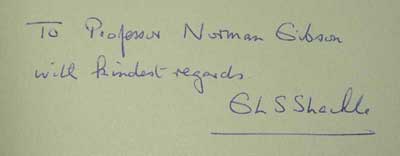 To Professor Norman Gibson
with kindest regards.
G L S Shackle